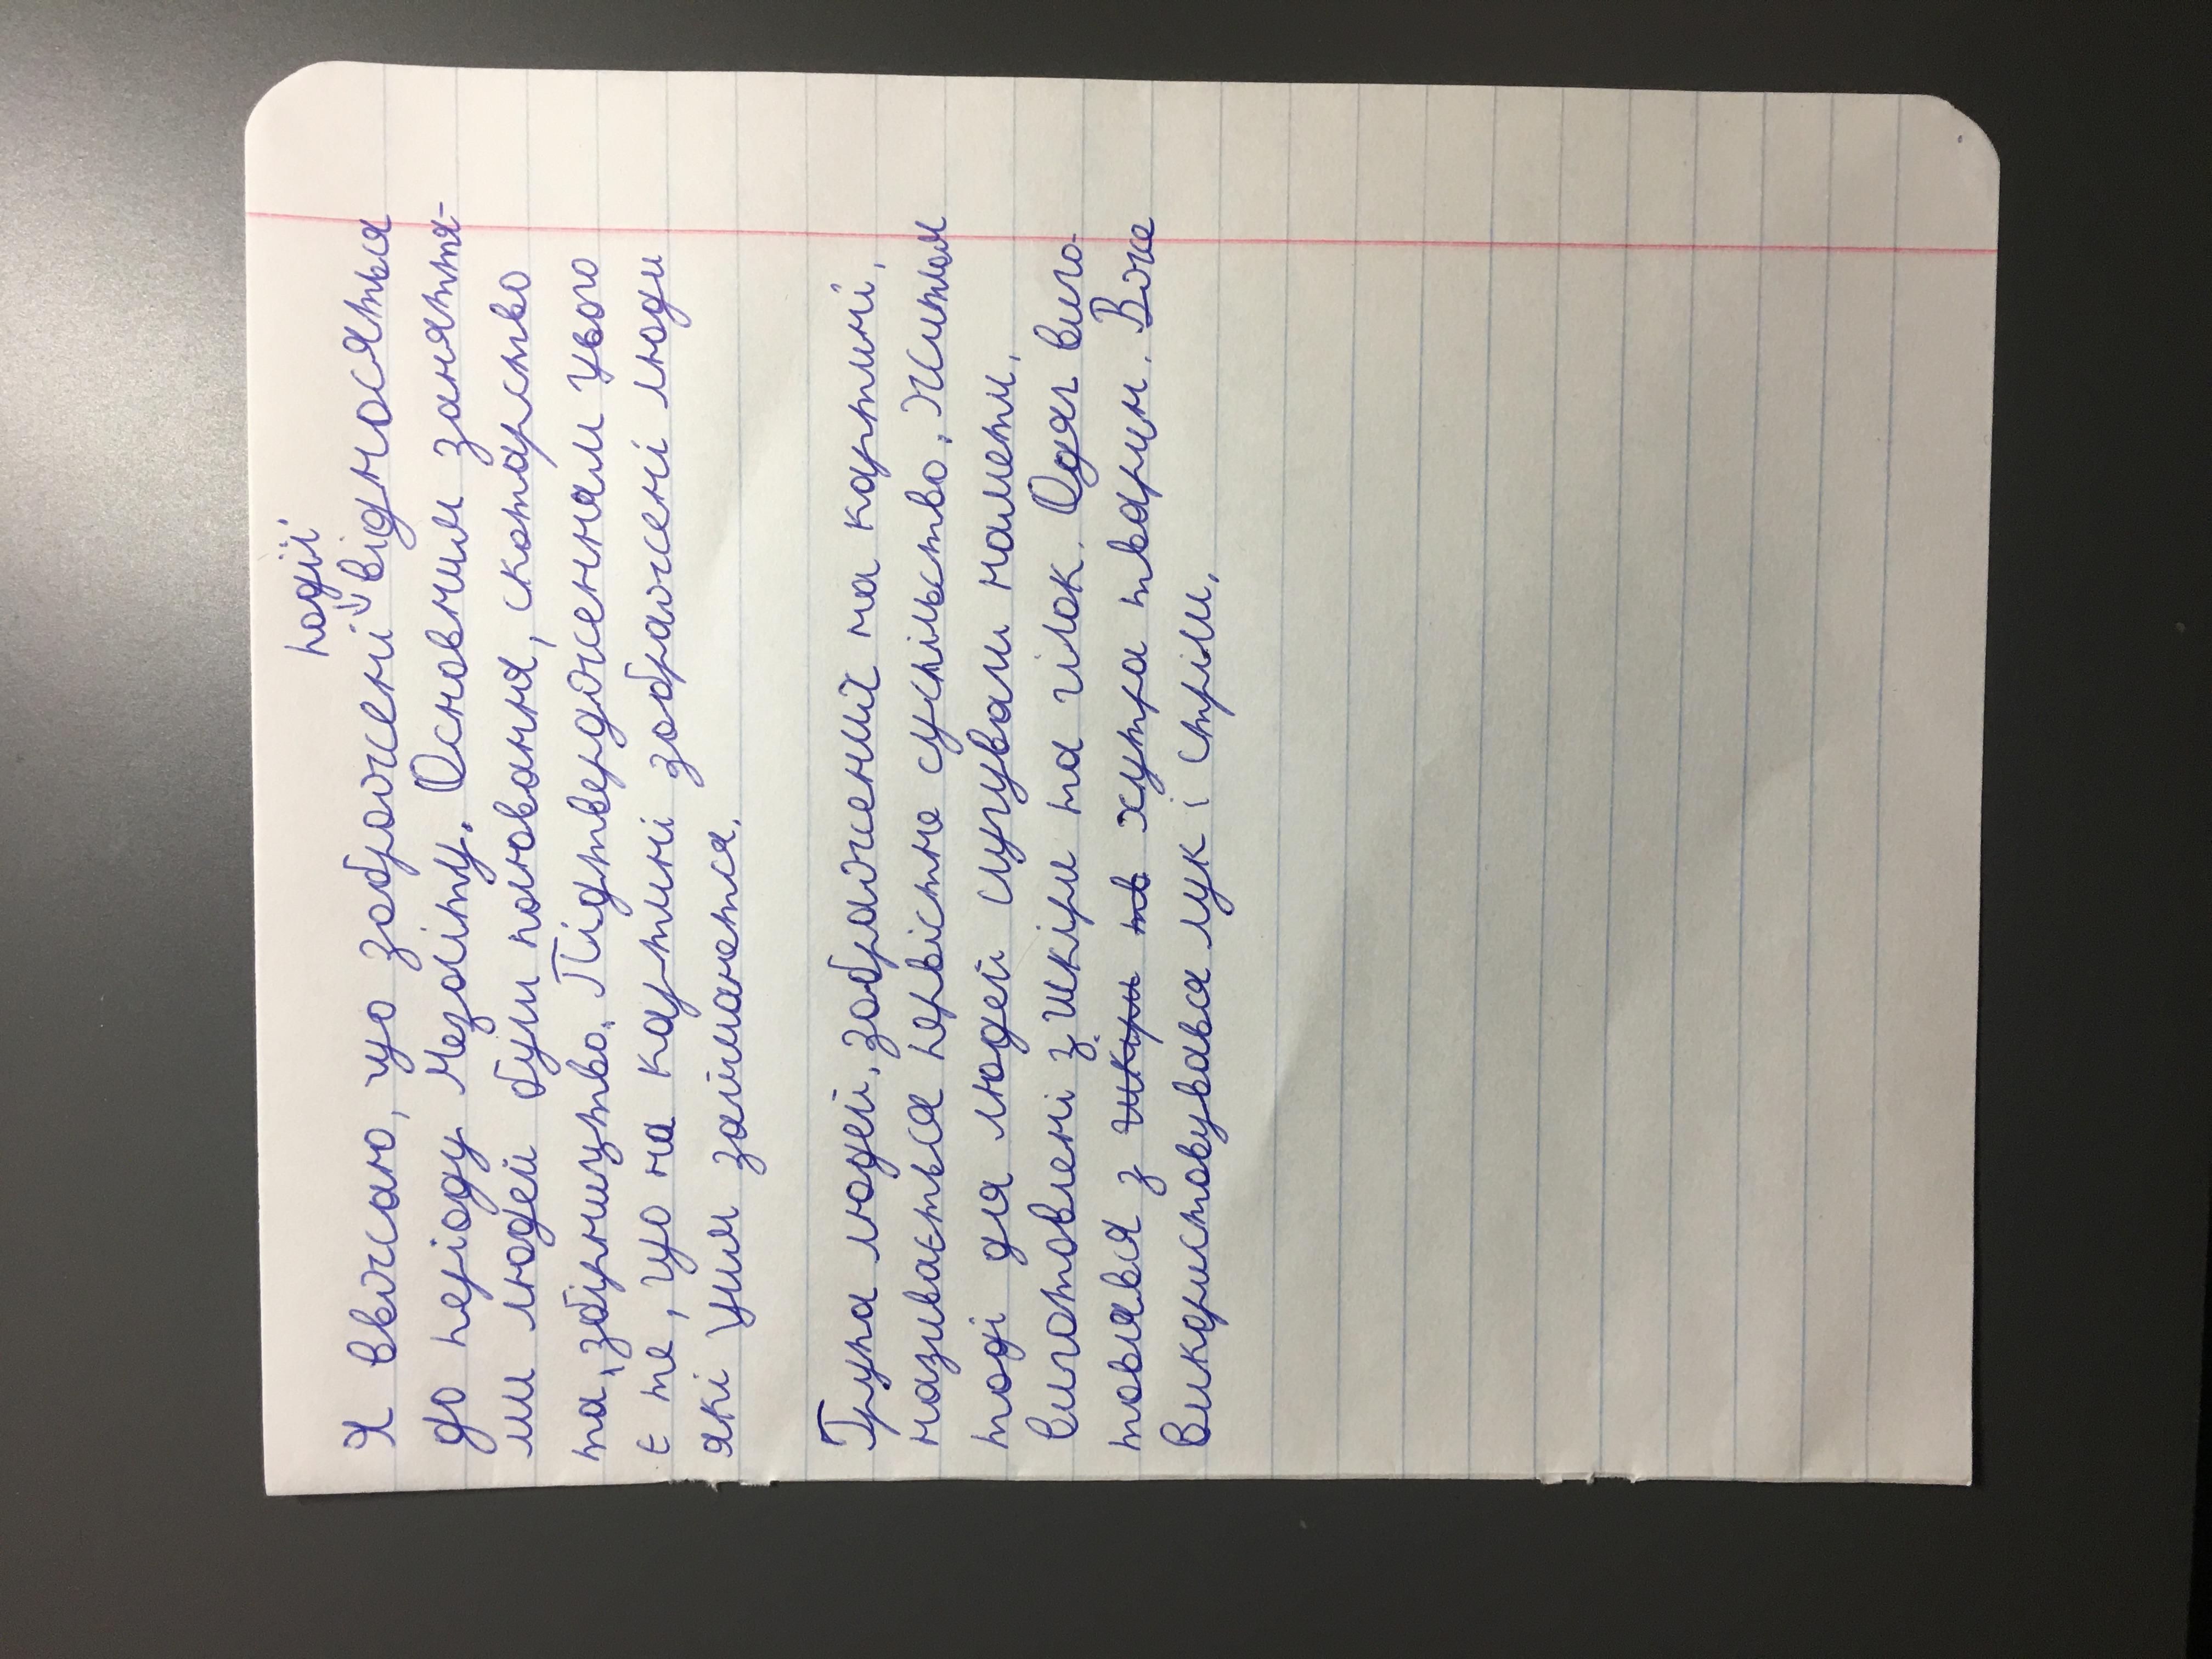 події
Я вважаю, що зображені відносяться
до періоду Мезоліту. Основним занятя-
ми людей були полювання, скотарство
та збірництво. Підтвердженням цього
є те, що на картині зображені люди
які цим займаются.
Група людей, зображений на картині,
називається первістне суспільство. Житлом
тоді для людей слугували намети,
виготовлені з шкіри та гілок. Одяг виго-
товлявся з шкіри тв хутра тварин. Вже
Використовувався лук і стріли.